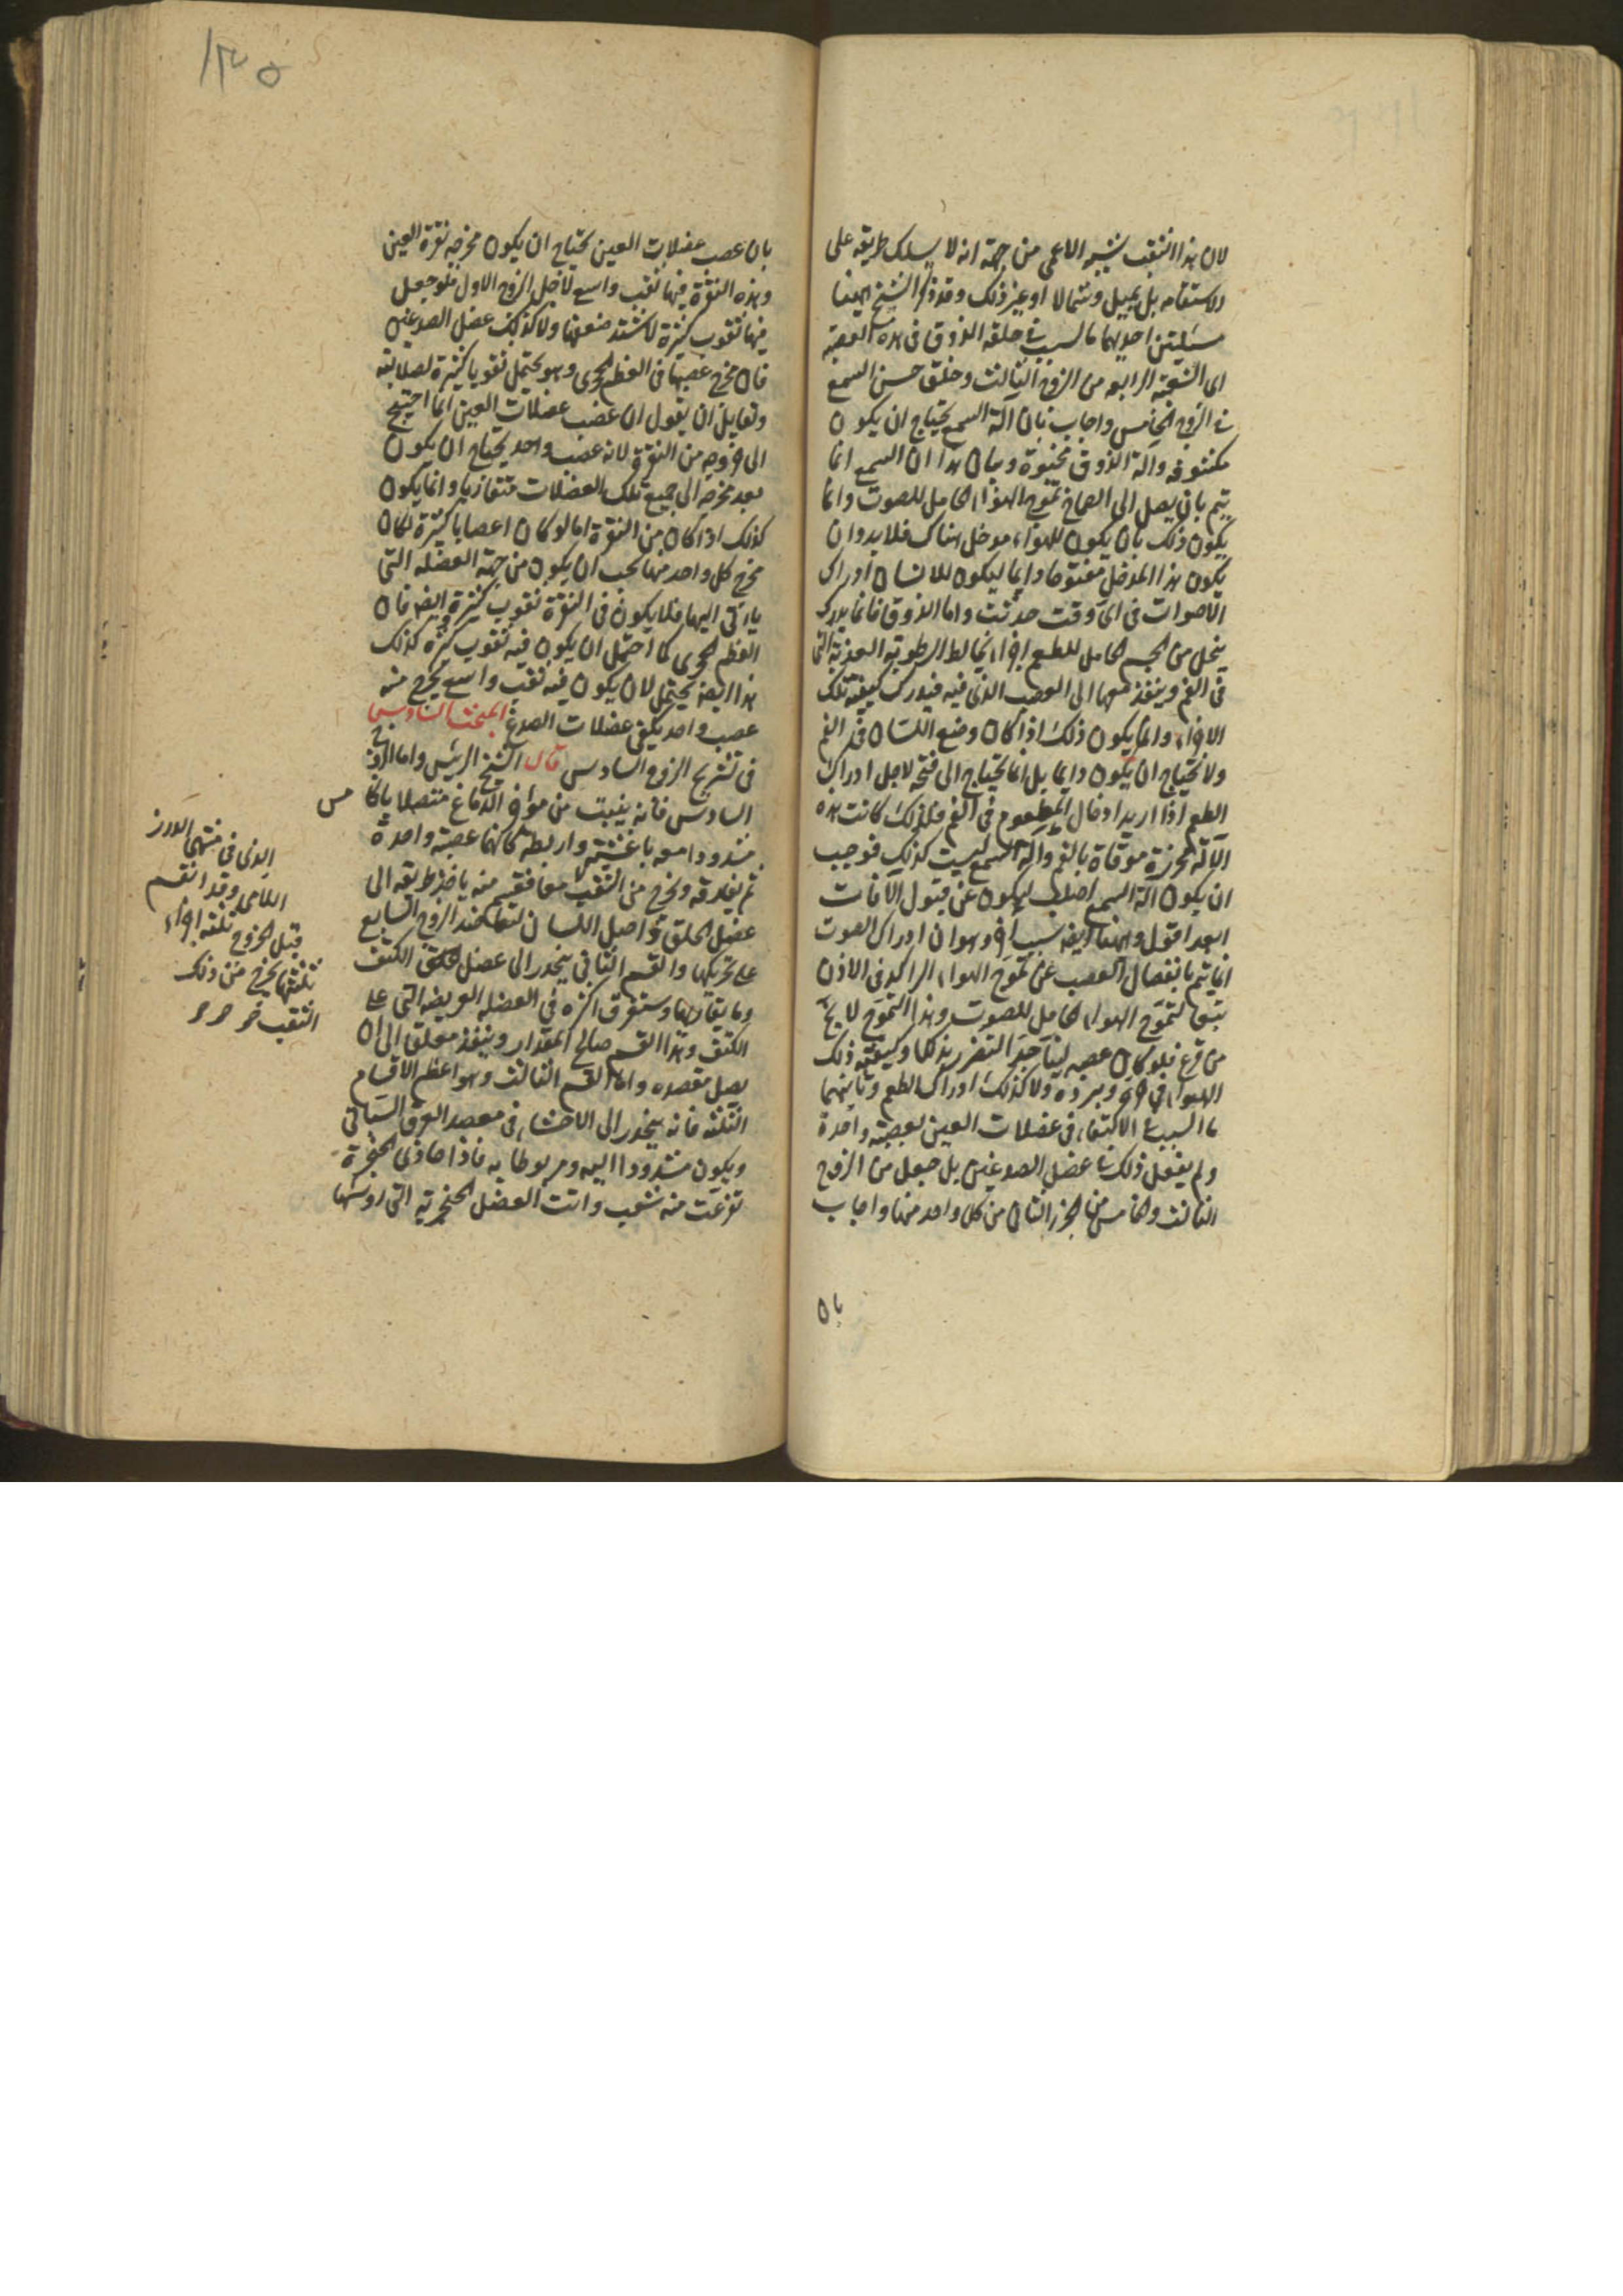 لان هذا الثقب يشبه الاعمى من جهة انه لا يسلك طريقه على
الاستقامه بل يميل وشمالا او غير ذلك وقد ذكر الشيخ ههنا
مسئلتين احديهما ما السبب فى خلقه الذوق فى هذه العصبة
اى الشعبة الرابعه من الزوج الثالث وخلق حس السمع
فى الزوج الخامس واجاب بان آلة السمع يحتاج ان يكون
مكشوفه والة الذوق مخبوة وبيان هذا ان السمع انما
يتم بان يصل الى الصماخ تموج الهواء الحامل للصوت وانما
يكون ذلك بان يكون للهواء مدخل هناك فلا بد وان
يكون هذا المدخل مفتوحا دايما ليكون للانسان ادراك
الاصوات فى اى وقت حدثت واما الذوق فانما يدرك
ينحل من الجسم الحامل للطعم اجزاء يخالط الرطوبة العذبة التى
فى الفم وينفذ معها الى العصب الذى فيه فيدرك كيفية تلك
الاجزاء وانما يكون ذلك اذا كان وضع اللسان فى الفم
ولا يحتاج ان يكون دايما بل انما يحتاج الى فتحه لاجل ادراك
الطعم اذا اريد ادخال المطعوم فى الفم فلذلك كانت هذه
الآلة محرزة موقاة بالفم وآلة السمع ليست كذلك فوجب
ان يكون آلة السمع اصلب ليكون عن قبول الآفات
ابعد اقول وههنا ايضا سبب اخر وهو ان ادراك الصوت
انما يتم بانفصال العصب عن تموج الهواء الراكد فى الاذن
تبعا لتموج الهواء الحامل للصوت وهذا التموج لا يخ
من قرع فلو كان عصبه لينا جدا لتضرر بذلك وكيفية ذلك
الهواء فى حره وبرده ولا كذلك ادراك الطعم وثانيهما
ما السبب فى الاكتفاء فى عضلات العين بعصبة واحدة
ولم يفعل ذلك فى عضل الصدغين بل جعل من الزوج
الثالث والخامس من الجزء الثانى من كل واحد منهما واجاب
بان
١٣٥
بان عصب عضلات العين يحتاج ان يكون مخرجه نقرة العين
وهذه النقرة فيها ثقب واسع لاجل الزوج الاول فلو جعل
فيها ثقوب كثيرة لاشتد ضعفها ولا كذلك عضل الصدغين
فان مخرج عصبها فى العظم الحجرى وهو يحتمل ثقوبا كثيرة لصلابته
ولقايل ان يقول ان عصب عضلات العين انما احتيج
الى خروجه من النقرة لانه عصب واحد يحتاج ان يكون
بعد مخرجه الى جميع تلك العضلات متقاربا وانما يكون
كذلك اذا كان من النقرة اما لو كان اعصابا كثيرة لكان
مخرج كل واحد منها يجب ان يكون من جهة العضله التى
ياتى اليها فلا يكون فى النقرة ثقوب كثيرة ايضا فان
العظم الحجرى كما احتمل ان يكون فيه ثقوب كثيرة كذلك
هذا ايضا يحتمل لان يكون فيه ثقب واسع يخرج منه
عصب واحد يكفى عضلات الصدغ المبحث السادس
فى تشريح الزوج السادس قال الشيخ الرئيس واما الزوج
السادس فانه ينبت من مؤخر الدماغ متصلا بالخامس
مشدودا معه باغشية واربطة كانهما عصبة واحدة
ثم يفارقه ويخرج من الثقب معا فقسم منه ياخذ طريقه الى
عضل الحلق واصل اللسان ليعاضد الزوج السابع
على تحريكها والقسم الثانى ينحدر الى عضل الكتف
وما يقاربها ويتفرق اكثره فى العضلة العريضه التى على
الكتف وهذا القسم صالح المقدار وينفذ معلقا الى ان
يصل مقصده واما القسم الثالث وهو اعظم الاقسام
الثلثه فانه ينحدر الى الاحشاء فى مصعد العرق السباتى
ويكون مشدودا اليه ومربوطا به فاذا حاذى الحنجرة
تفرعت منه شعب واتت العضل الحنجرية التى روسها
الذى فى منتهى الدرز
اللامى وقد انقسم
قبل الخروج ثلثه اجزاء
ثلثتها يخرج من ذلك
الثقب